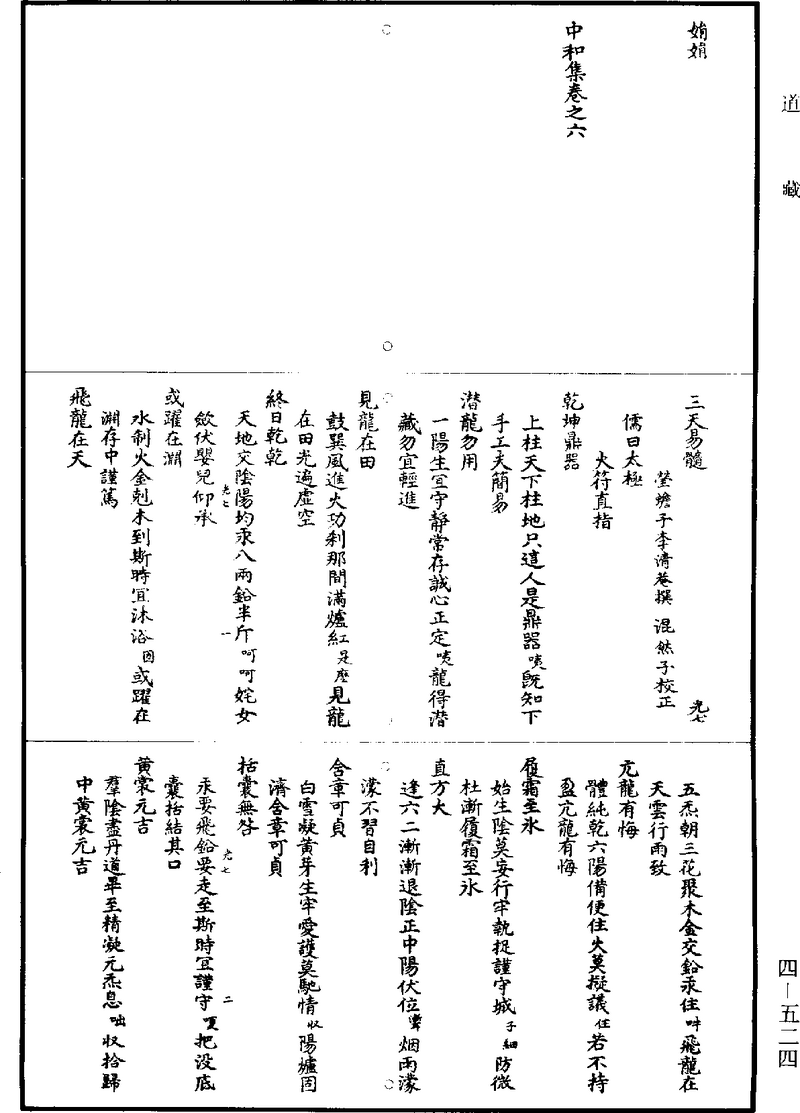 道藏
娟娟
中和集卷之六
三天易髓
瑩蟾子李清菴撰 混然子校正
光七
儒曰太極
火符直指
乾坤鼎器
上柱天下柱地只這人是鼎器咦既知下
手工夫簡易
潛龍勿用
一陽生宜守靜常存誠心正定咦龍得潛
藏勿宜輕進
見龍在田
鼓巽風進火功刹那間滿爐紅是麼見龍
在田光遍虛空
終日乾乾
天地交陰陽均汞八兩鉛半斤呵呵姹女
斂伏嬰兒仰承
光七 一
或躍在淵
水制火金剋木到斯時宜沐浴囡或躍在
淵存中謹篤
飛龍在天
五炁朝三花聚木金交鉛汞住吽飛龍在
天雲行雨致
亢龍有悔
體純乾六陽備便住火莫擬議住若不持
盈亢龍有悔
履霜至氷
始生陰莫妄行牢執捉謹守城子細防微
杜漸履霜至氷
直方大
逢六二漸漸退陰正中陽伏位烟雨濛
濛不習自利
含章可貞
白雪凝黃芽生牢愛護莫馳情收陽爐固
濟含章可貞
括囊無咎
汞要飛鉛要走至斯時宜謹守把没底
囊括結其口
光七 二
黃裳元吉
羣陰盡丹道畢至精凝元炁息咄收拾歸
中黃裳元吉
四—五二四